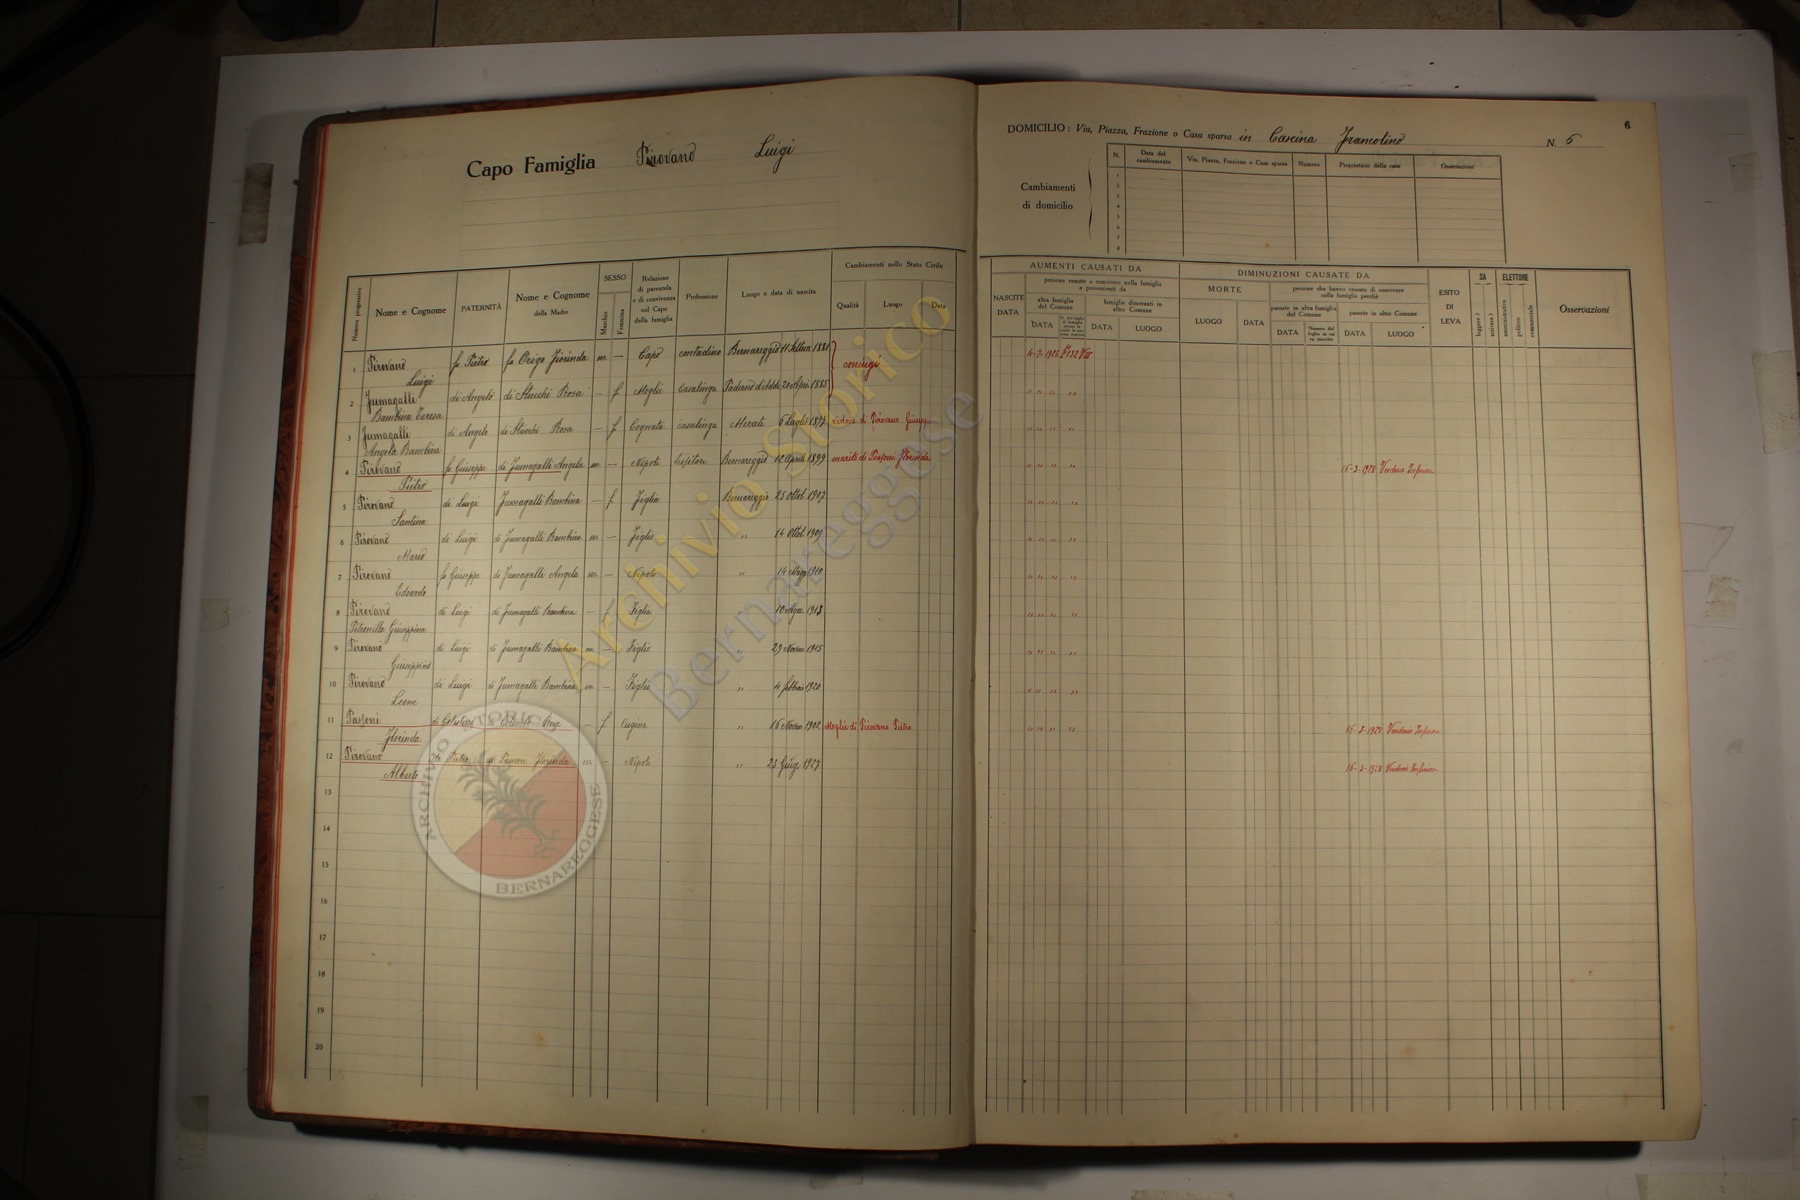 Capo Famiglia Pirovano Luigi
6
DOMICILIO: Via, Piazza, Frazione o Casa sparsa in Cascina Francolino N. 6
Cambiamenti
di domicilio
N. Data del cambiamento Via, Piazza, Frazione o Casa sparsa Numero Proprietario della casa Osservazioni
1
2
3
4
5
6
7
8
Numero progressivo
Nome e Cognome
PATERNITÀ
Nome e Cognome
della Madre
SESSO
Maschio
Femmina
Relazione
di parentela
o di convivenza
col Capo
della famiglia
Professione
Luogo e data di nascita
Cambiamenti nello Stato Civile
Qualità Luogo Data
AUMENTI CAUSATI DA
NASCITE
DATA
persone venute a convivere nella famiglia
e provenienti da
altra famiglia
del Comune
famiglie dimoranti in
altro Comune
DATA
DATA LUOGO
DIMINUZIONI CAUSATE DA
MORTE
LUOGO DATA
persone che hanno cessato di convivere
colla famiglia perchè
passate in altra famiglia
del Comune
passate in altro Comune
DATA
DATA LUOGO
ESITO
DI
LEVA
SA
leggere
scrivere
ELETTORE
amministrativo
politico
commerciale
Osservazioni
1 Pirovano Luigi fu Pietro fu Origo Fiorinda m. — Capo contadino Bernareggio 11 Settem. 1881 coniugi 4-7-1926
2 Fumagalli Bambina Teresa di Angelo di Stucchi Rosa — f Moglie casalinga Paderno d'Adda 20 Apri. 1885 " " " "
3 Fumagalli Angela Bambina di Angelo di Stucchi Rosa — f Cognata casalinga Merate 6 Luglio 1877 vedova di Pirovano Giuseppe " " " "
4 Pirovano Pietro fu Giuseppe di Fumagalli Angela m. — Nipote Bernareggio 12 Aprile 1899 marito di Passoni Florinda " " " " 16-3-1928 Verderio Inferiore
5 Pirovano Santina di Luigi Fumagalli Bambina — f Figlia Bernareggio 25 Ottob. 1907 " " " "
6 Pirovano Mario di Luigi di Fumagalli Bambina m. — Figlio " 14 Ottob. 1909 " " " "
7 Pirovano Edoardo fu Giuseppe di Fumagalli Angela m. — Nipote " 14 Magg. 1910 " " " "
8 Pirovano Petronilla Giuseppina di Luigi di Fumagalli Bambina — f Figlia " 1913 " " " "
9 Pirovano Giuseppino di Luigi di Fumagalli Bambina m. — Figlio " 29 Novem. 1915 " " " "
10 Pirovano Leone di Luigi di Fumagalli Bambina m. — Figlio " 4 febbraio 1920 " " " "
11 Passoni Florinda di Celestino di Colombo Rosa — f Cugina " 16 Novem. 1902 Moglie di Pirovano Pietro " " " " 16-3-1928 Verderio Inferiore
12 Pirovano Alberto di Pietro di Passoni Florinda m. — Nipote " 23 Giug. 1927 16-3-1928 Verderio Inferiore
13
14
15
16
17
18
19
20
Archivio Storico
Bernareggese
ARCHIVIO STORICO
BERNAREGGESE